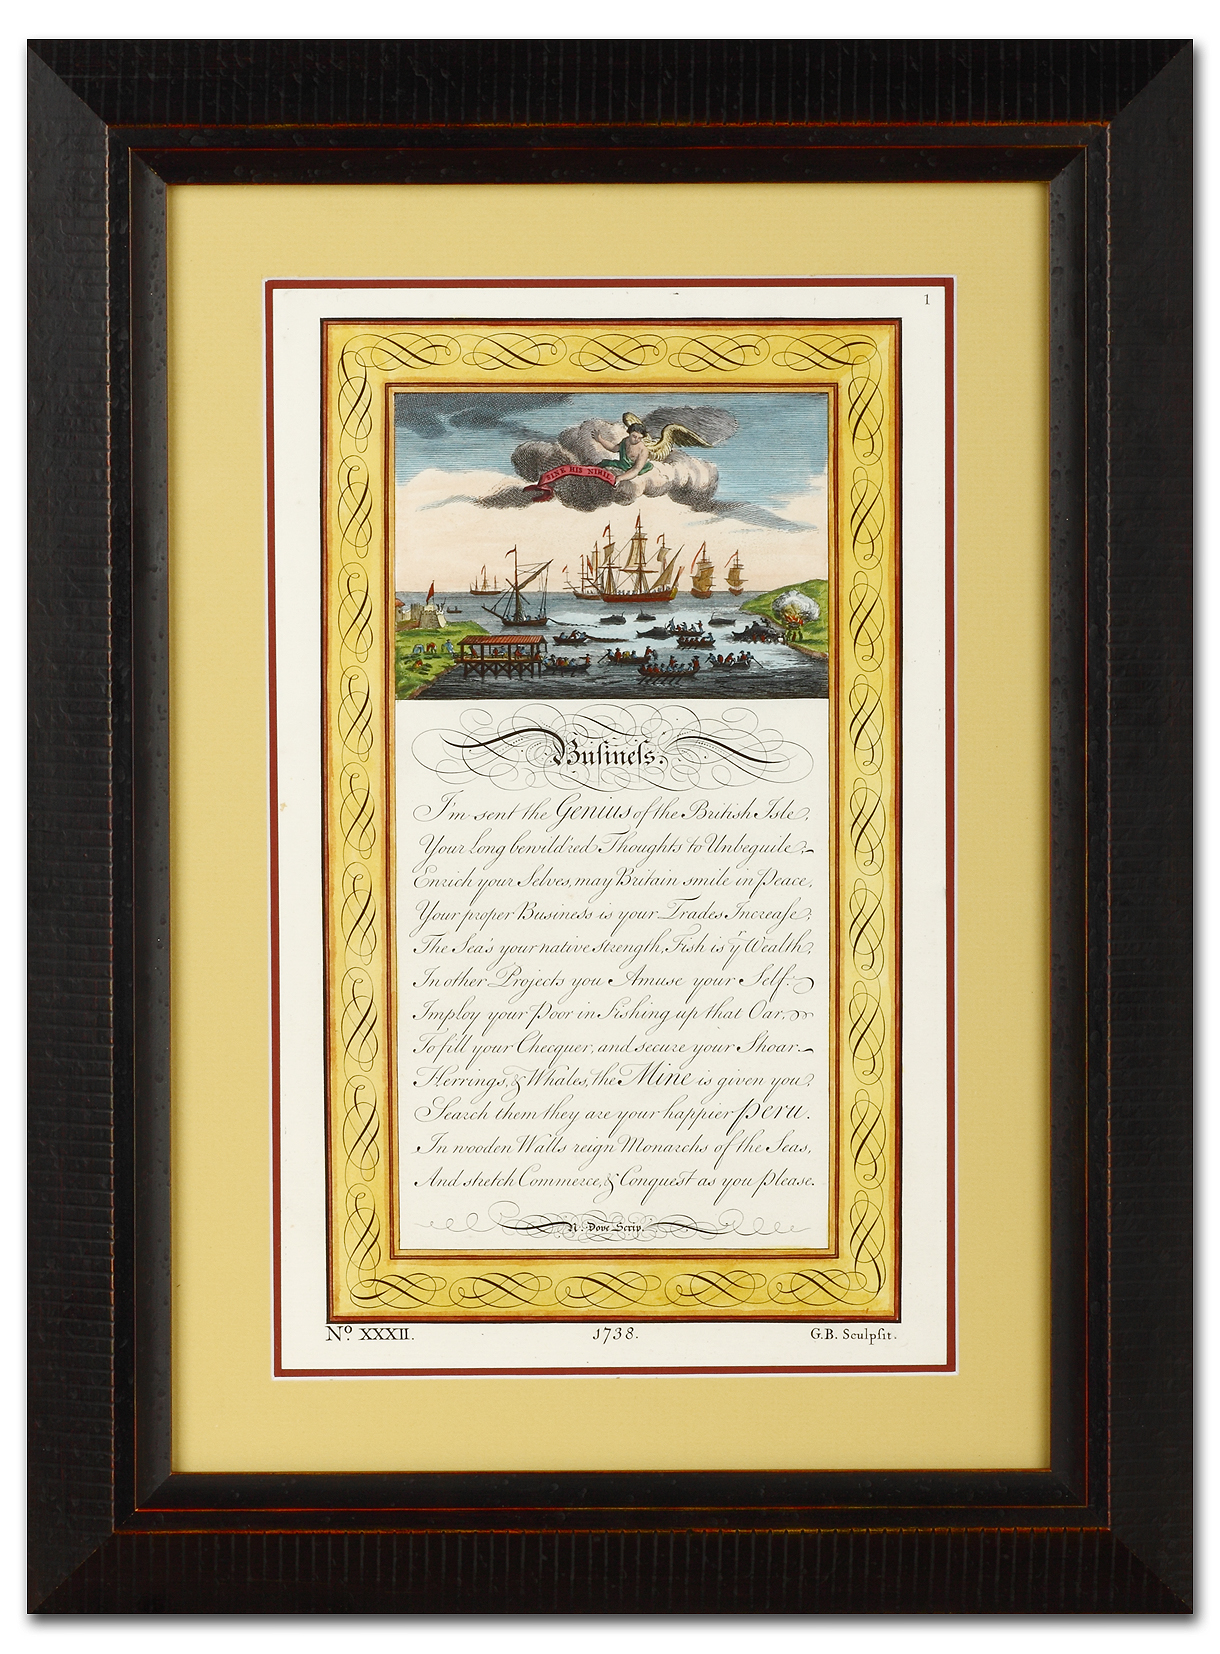 1
SINE HIS NIHIL
Buſineſs.
I'm sent the Genius of the British Isle,
Your long bewild'red Thoughts to Unbeguile;
Enrich your Selves, may Britain smile in Peace,
Your proper Business is your Trades Increaſe;
The Sea's your native strength, Fish is yr Wealth,
In other Projects you Amuse your Self:
Imploy your Poor in Fishing up that Oar,
To fill your Checquer, and secure your Shoar.
Herrings, & Whales, the Mine is given you,
Search them they are your happier Peru.
In wooden Walls reign Monarchs of the Seas,
And stretch Commerce, & Conquest as you please.
N. Dove Scrip.
No. XXXII.
1738.
G.B. Sculpſit.